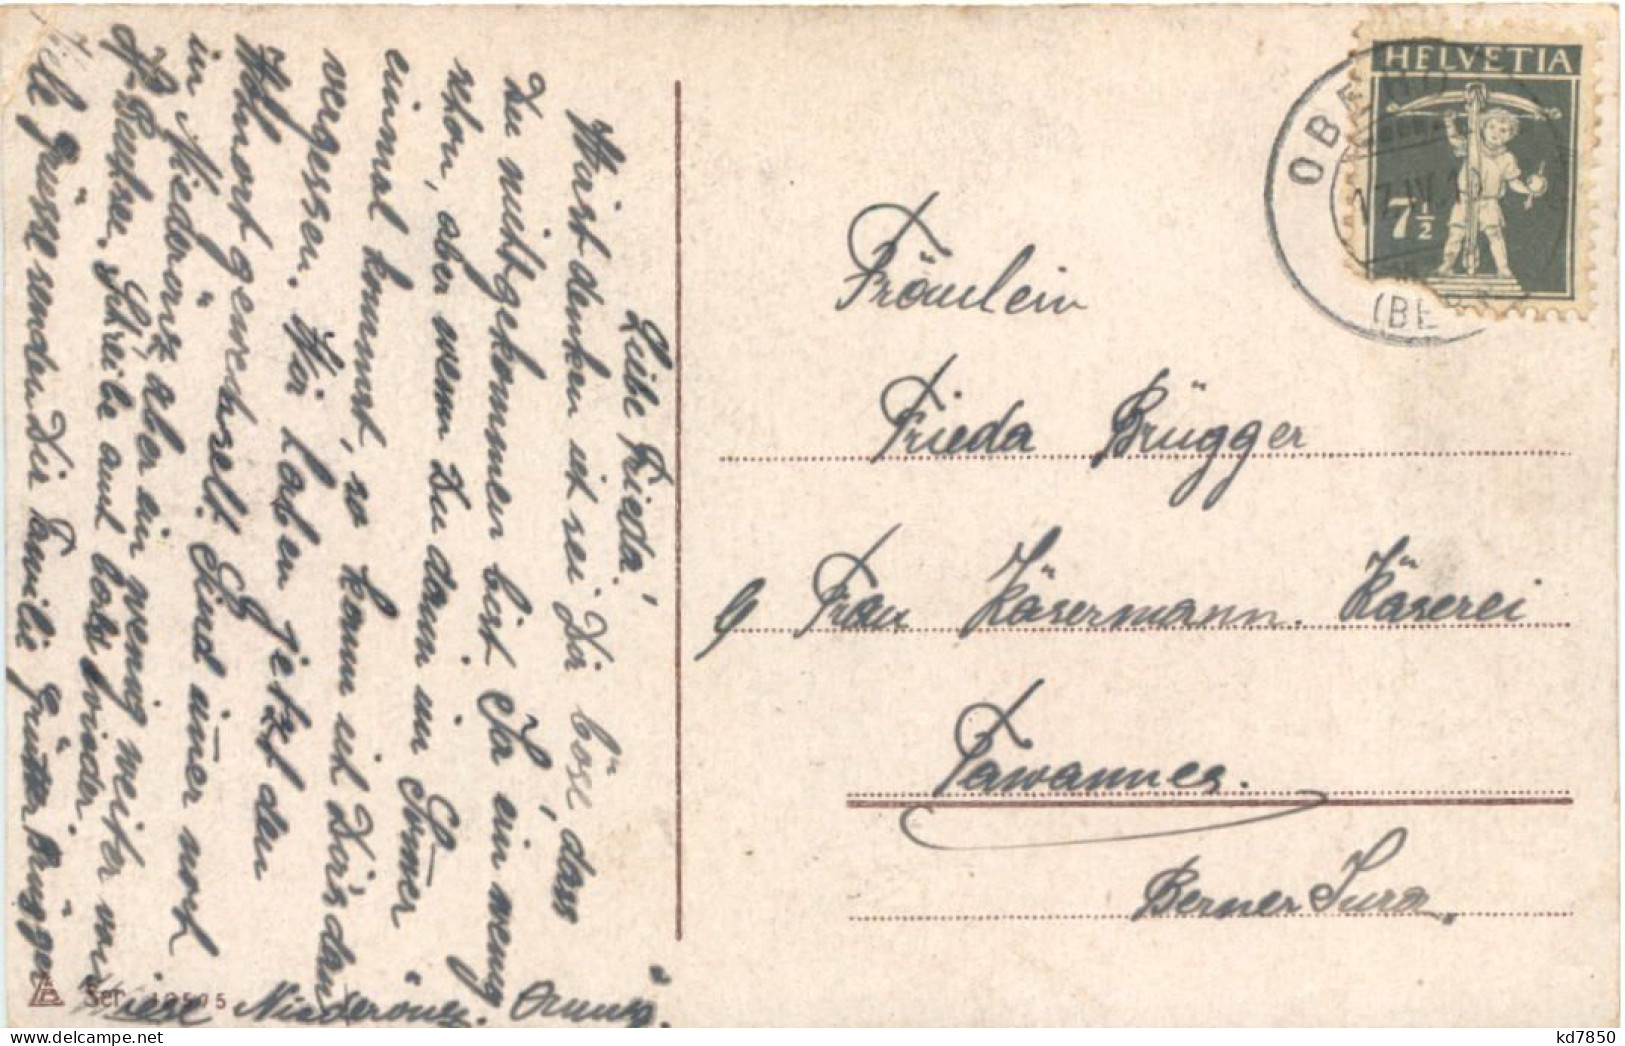 Liebe Frieda!
Wirst denken ich sei Dir böse, dass
Du nicht gekommen bist. Ja ein wenig
schon, aber wenn Du dann im Sommer
einmal kommst, so kann ich Dir's dann
vergessen. Wir haben jetzt den
Wohnort gewechselt. Sind immer noch
in Niederönz, aber ein wenig weiter
Schreibe aund bald wieder.
Viele Grüsse senden Dir Familie Grütter Brügger
Niederönz.
Ser. 12505
HELVETIA
7½
OBERÖ
17.IV.1
(BERN)
Fräulein
Frieda Brügger
Frau Käsermann. Käserei
Tavannes.
Berner Jura.
kd7850